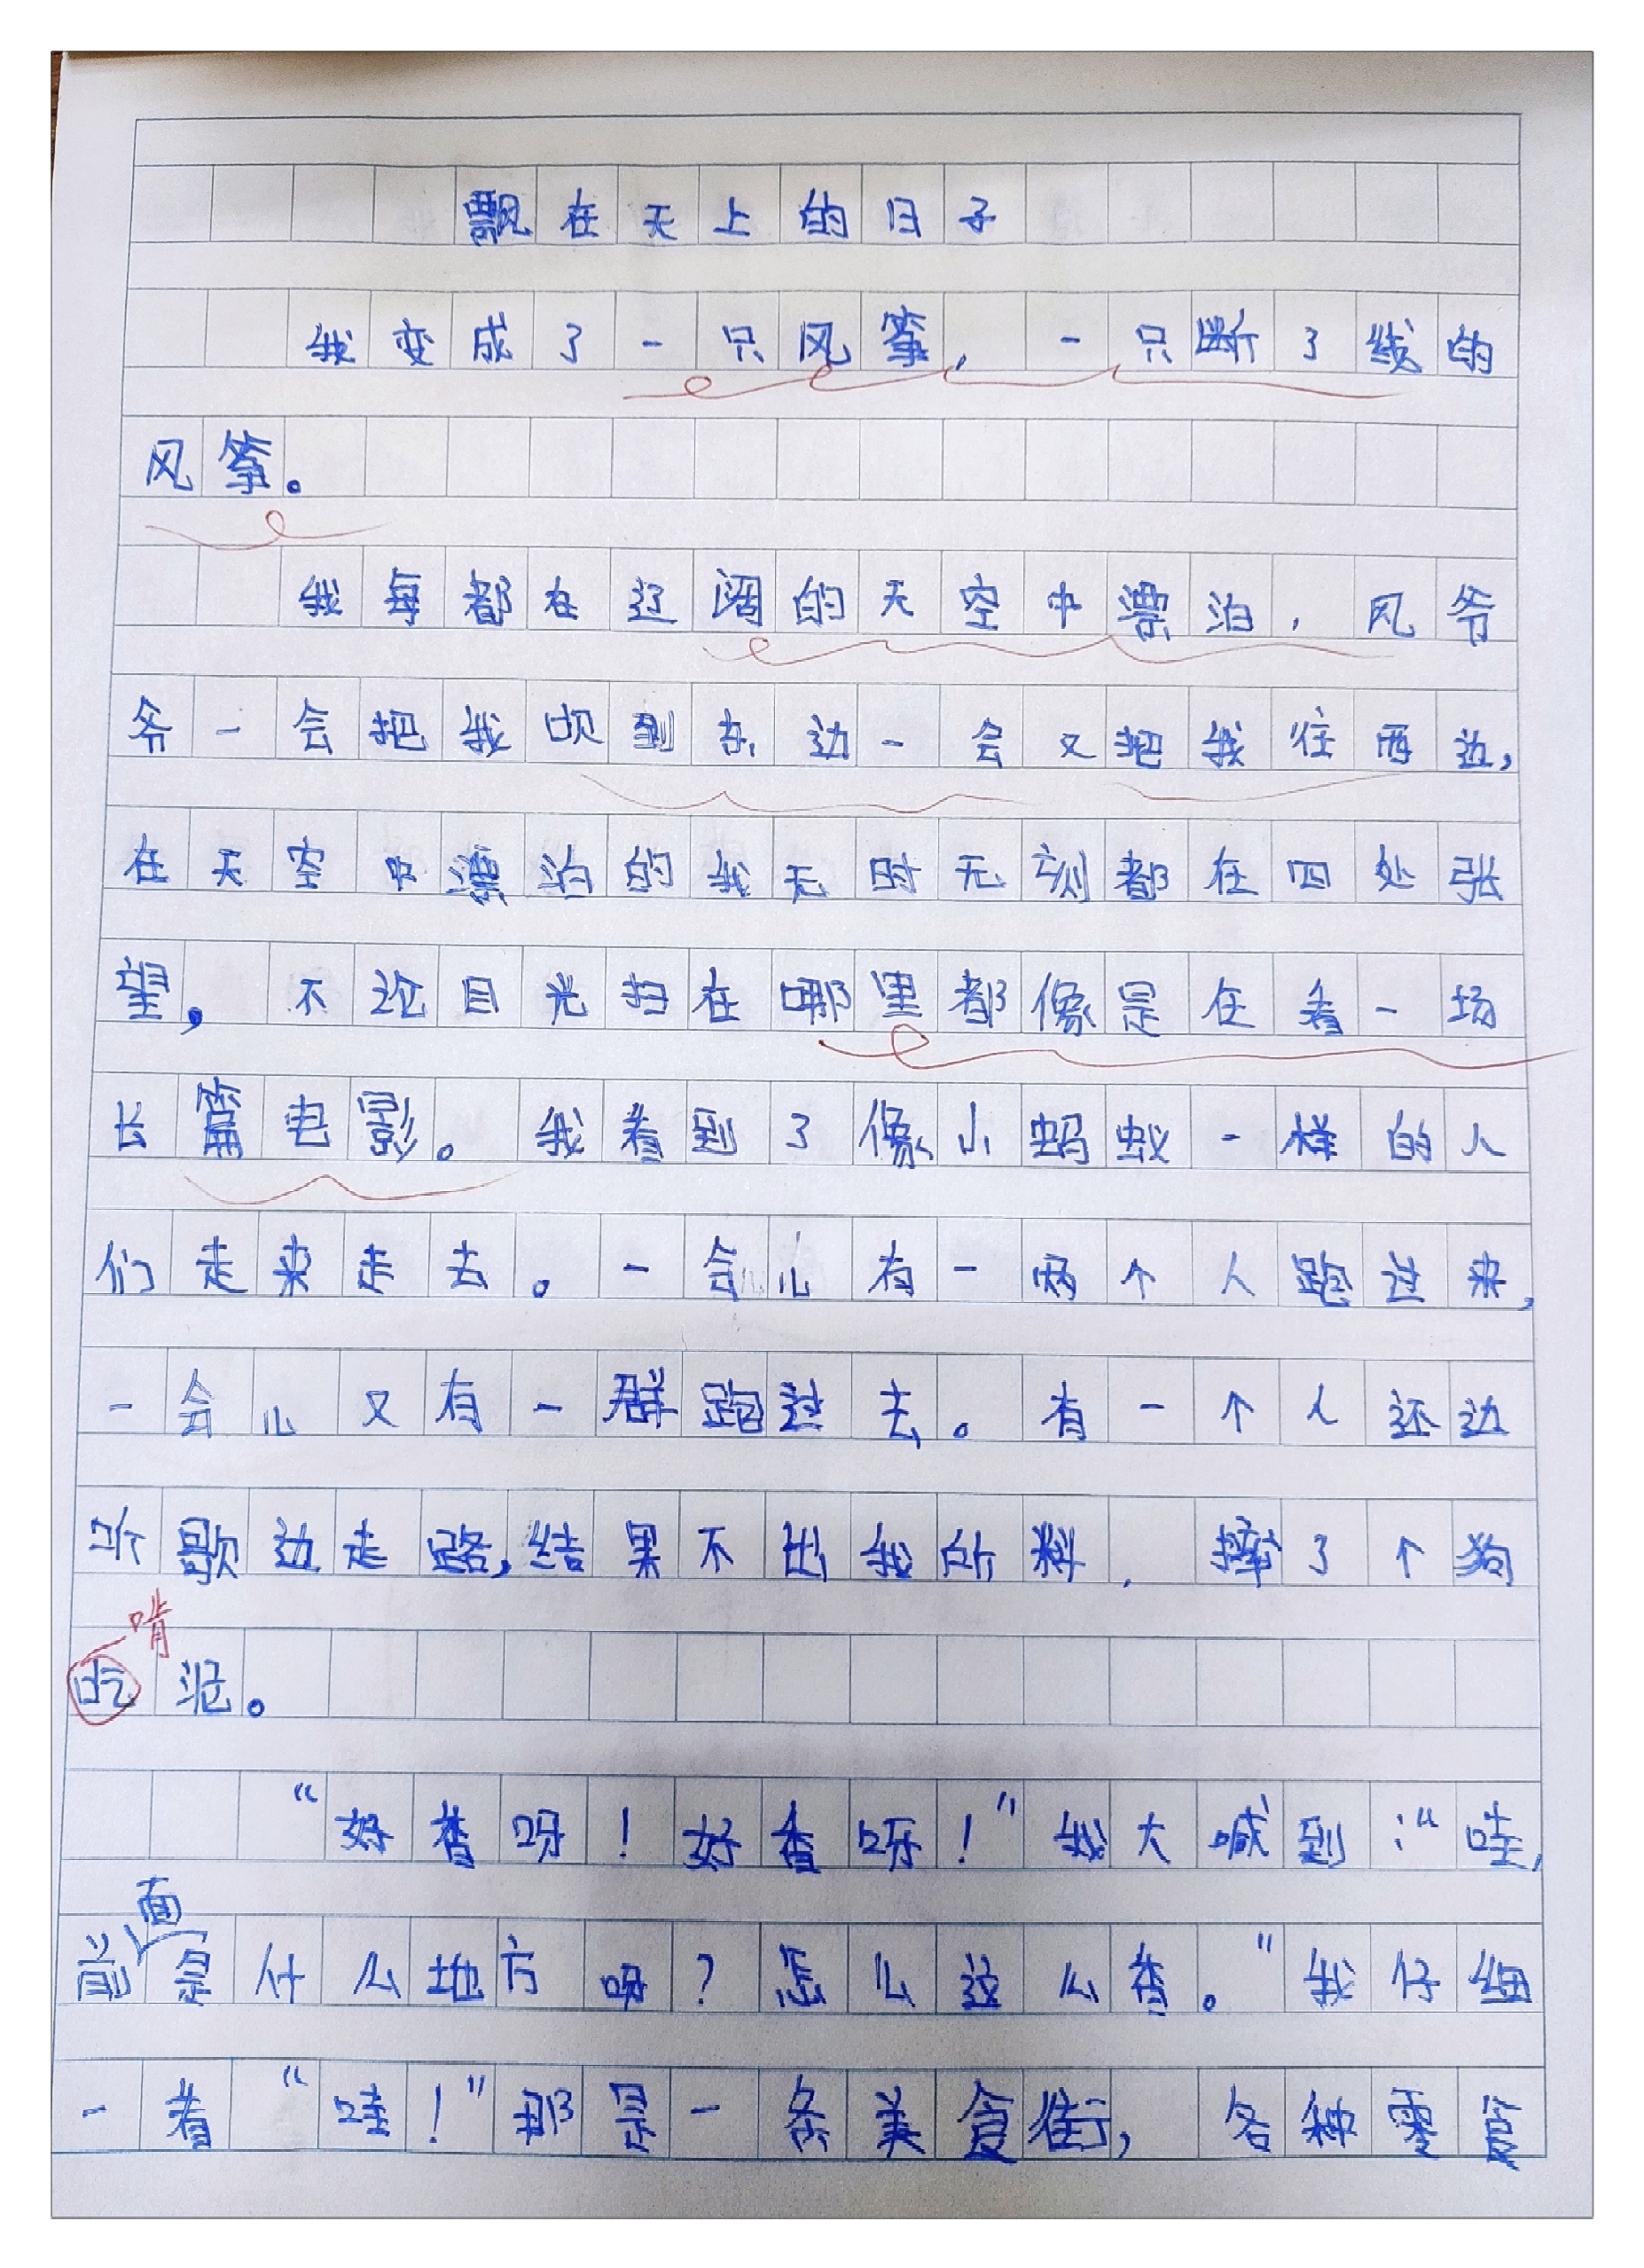 飘在天上的日子
我变成了一只风筝，一只断了线的
风筝。
我每都在辽阔的天空中漂泊，风爷
爷一会把我吹到东边一会又把我往西边，
在天空中漂泊的我无时无刻都在四处张
望，不论目光扫在哪里都像是在看一场
长篇电影。我看到了像小蚂蚁一样的人
们走来走去。一会儿有一两个人跑过来，
一会儿又有一群跑过去。有一个人还边
听歌边走路，结果不出我所料，摔了个狗
啃
吃泥。
“好香呀！好香呀！”我大喊到：“哇，
面
前是什么地方呀？怎么这么香。”我仔细
一看“哇！”那是一条美食街，各种零食